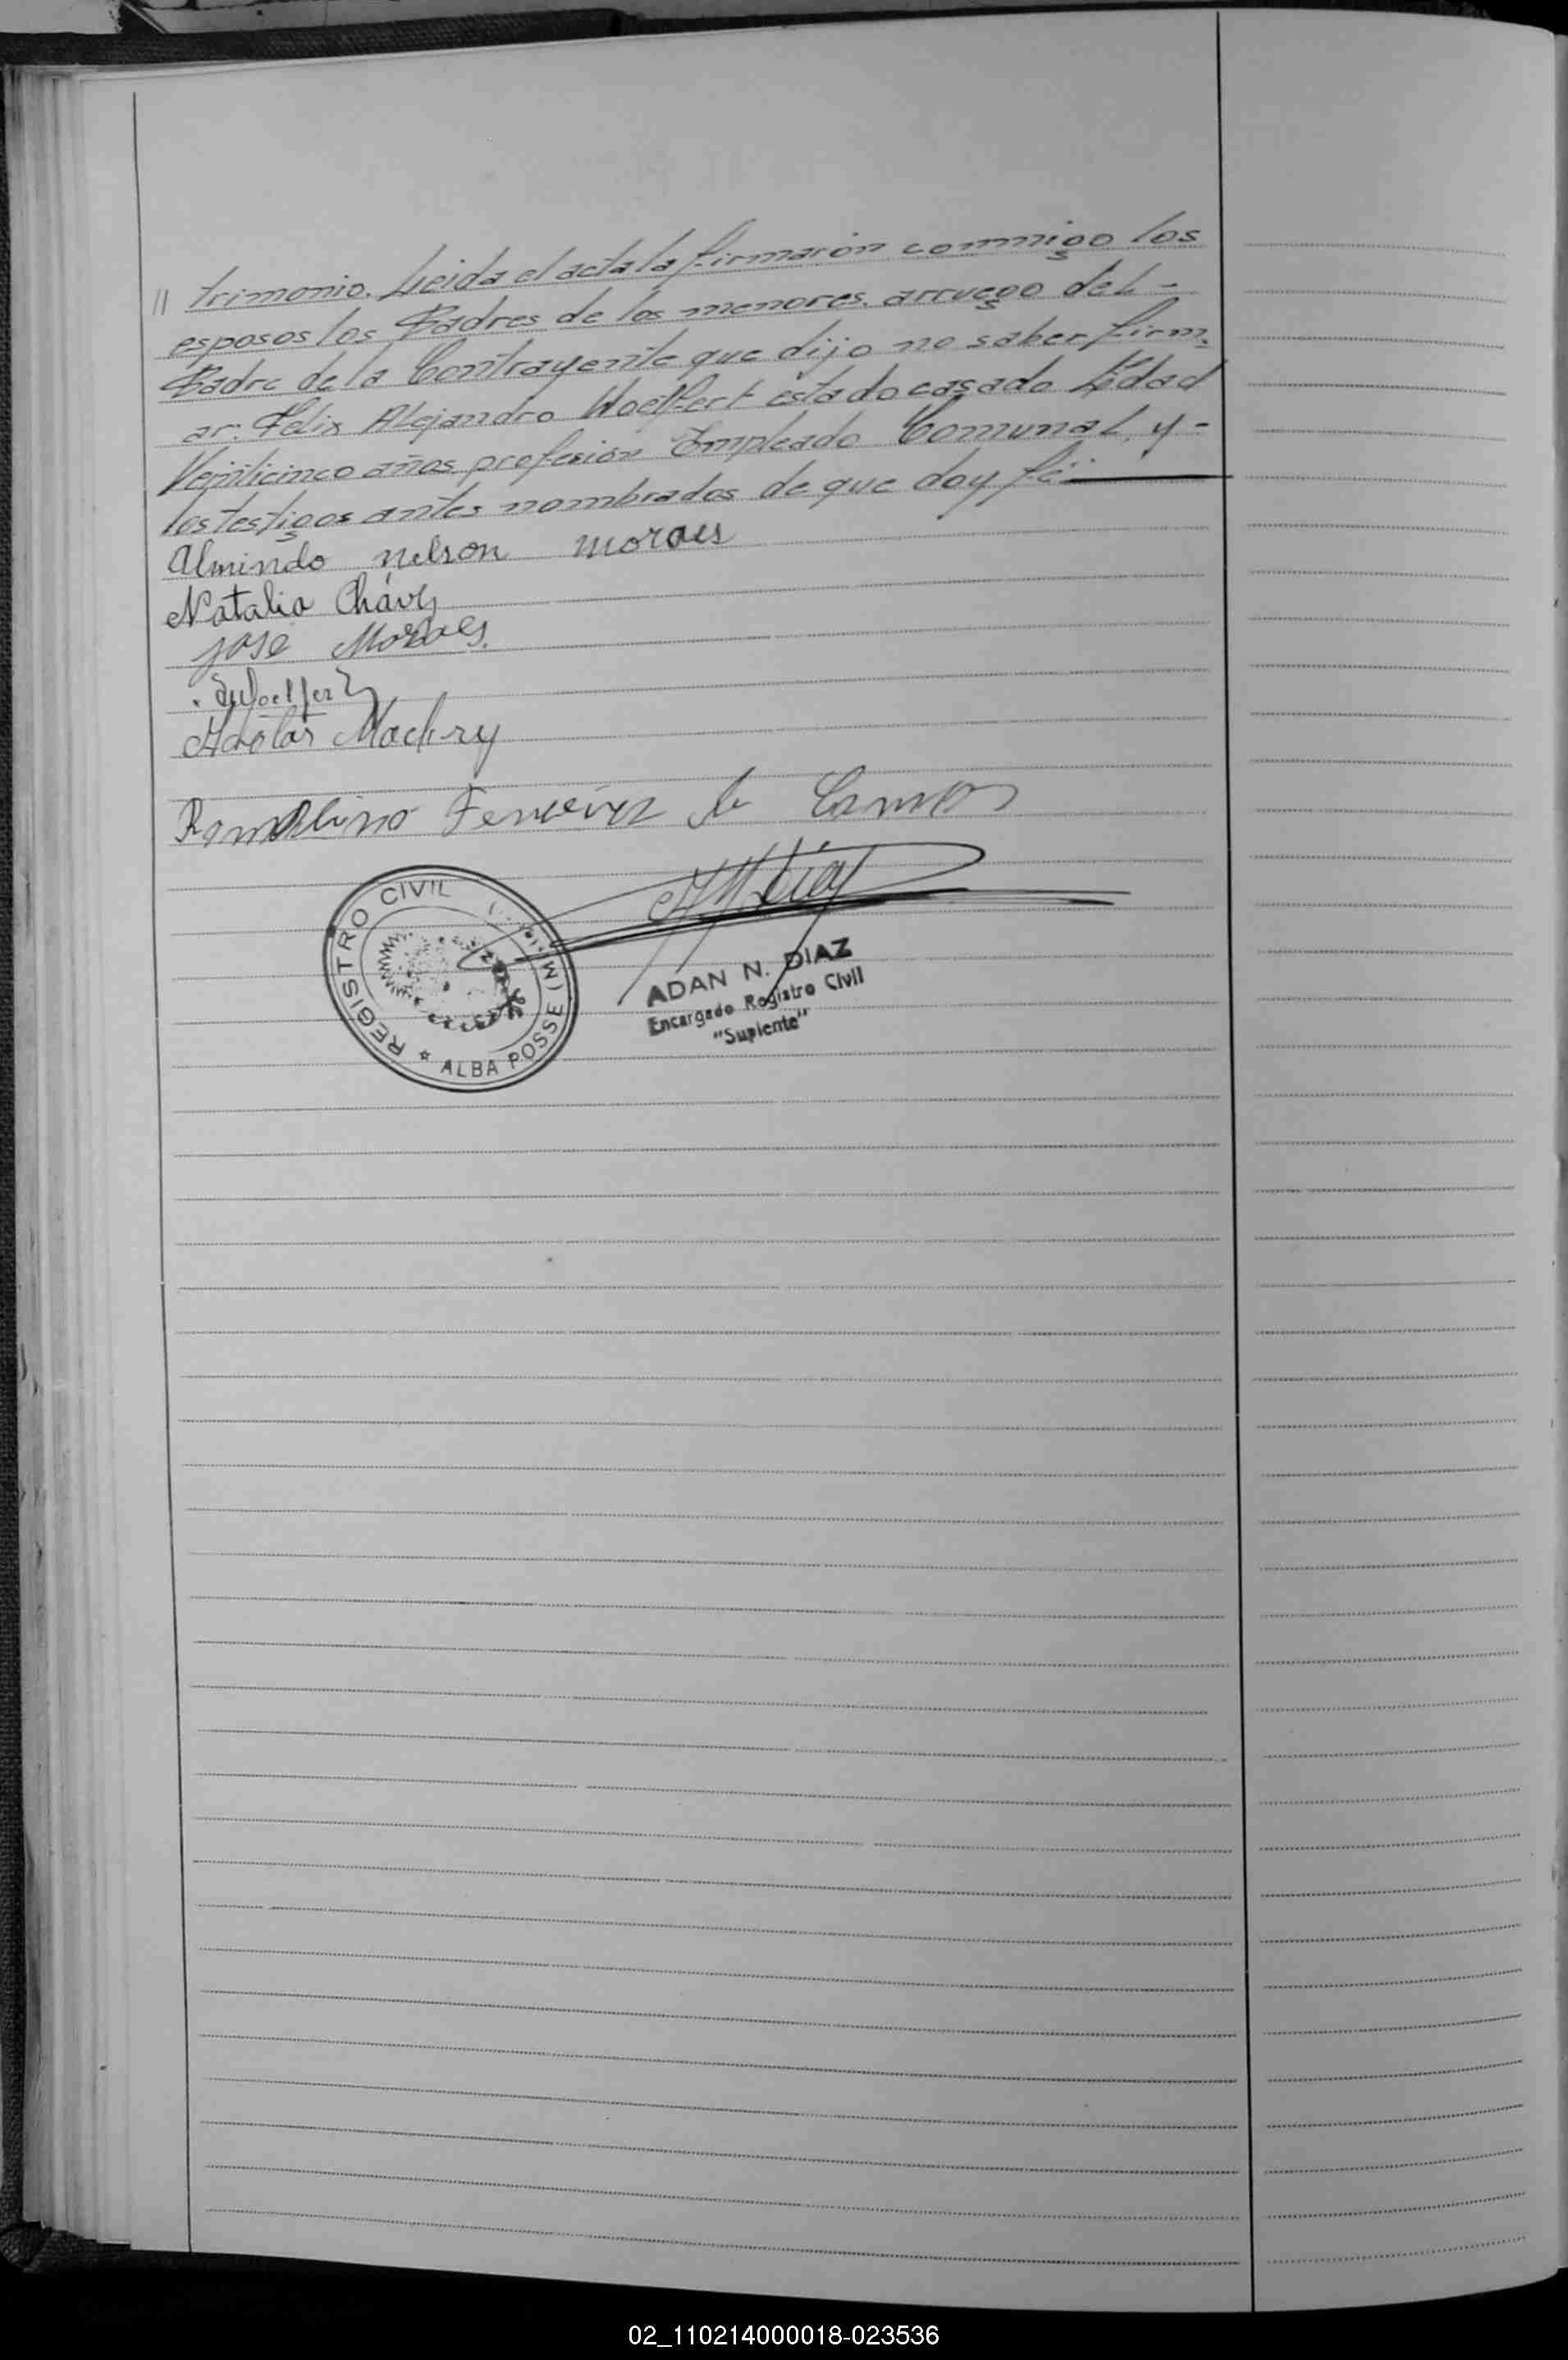 // trimonio. Leida el acta la firmarón conmigo los
esposos los Padres de los menores. arruego del -
Padre de la Contrayente que dijo no saber firm.
ar: Felix Alejandro Woelfert estado casado Edad
Veinticinco años profesión Empleado Comunal, y -
los testigos antes nombrados de que doy fé:
Almindo nelson moraes
Natalia Cháves
Jose Moraes.
Woelfert
Machry
Romolino Ferreira de Camos
REGISTRO CIVIL
ALBA POSSE (Mnes.)
ADAN N. DIAZ
Encargado Registro Civil
"Suplente"
02_110214000018-023536